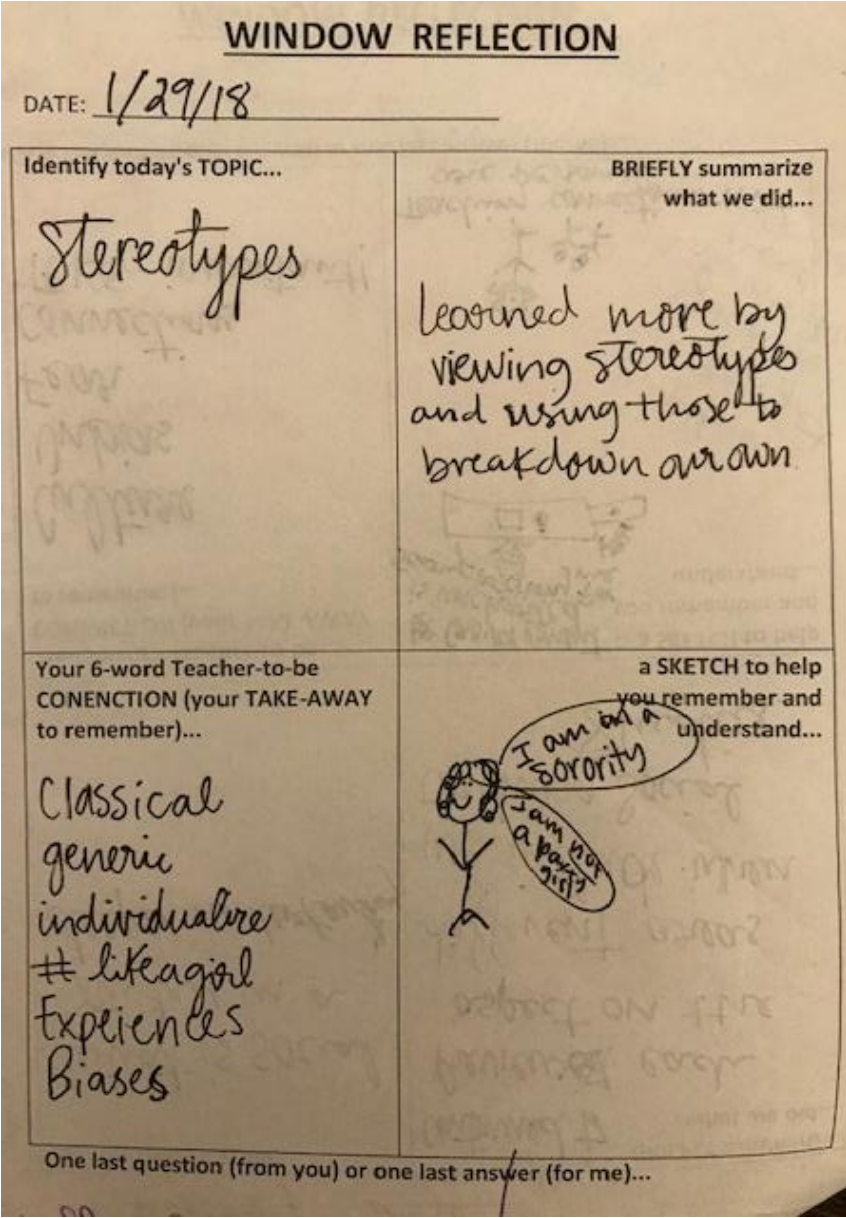 WINDOW REFLECTION
DATE: 1/29/18
Identify today's TOPIC...
Stereotypes
BRIEFLY summarize
what we did...
learned more by
viewing stereotypes
and using those to
breakdown our own
Your 6-word Teacher-to-be
CONENCTION (your TAKE-AWAY
to remember)...
Classical
generic
individualize
# likeagirl
Expeiences
Biases
a SKETCH to help
you remember and
understand...
I am in a
sorority
I am not
a party
girl
One last question (from you) or one last answer (for me)...